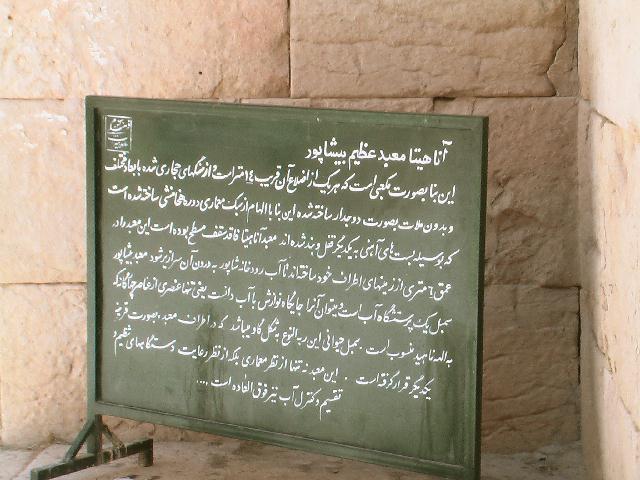 آناهیتا معبد عظیم بیشاپور
این بنا بصورت مکعبی است که هر یک از اضلاع آن قریب ۱۴ متر است و از سنگهای حجاری شده با ابعاد مختلف
و بدون ملات بصورت دو جدار ساخته شده این بنا با الهام از سبک معماری دوره هخامنشی ساخته شده است
که بوسیله بست‌های آهنی به یکدیگر قفل و بند شده‌اند معبد آناهیتا فاقد سقف مسطح بوده است این معبد را در
عمق ۶ متری از زمینهای اطراف خود ساخته‌اند تا آب رودخانه شاپور به درون آن سرازیر شود معبد بیشاپور
سمبل یک پرستشگاه آب است و میتوان آنرا جایگاه نوازش با آب دانست یعنی تنها عنصری از عناصر چهارگانه که
به الهه ناهید منسوب است . سمبل حیوانی این رب النوع به شکل گاو میباشد که در اطراف معبد بصورت قرینه
یکدیگر قرار گرفته است . این معبد نه تنها از نظر معماری بلکه از نظر رعایت دستگاههای تنظیم و
تقسیم و کنترل آب نیز فوق العاده است ....